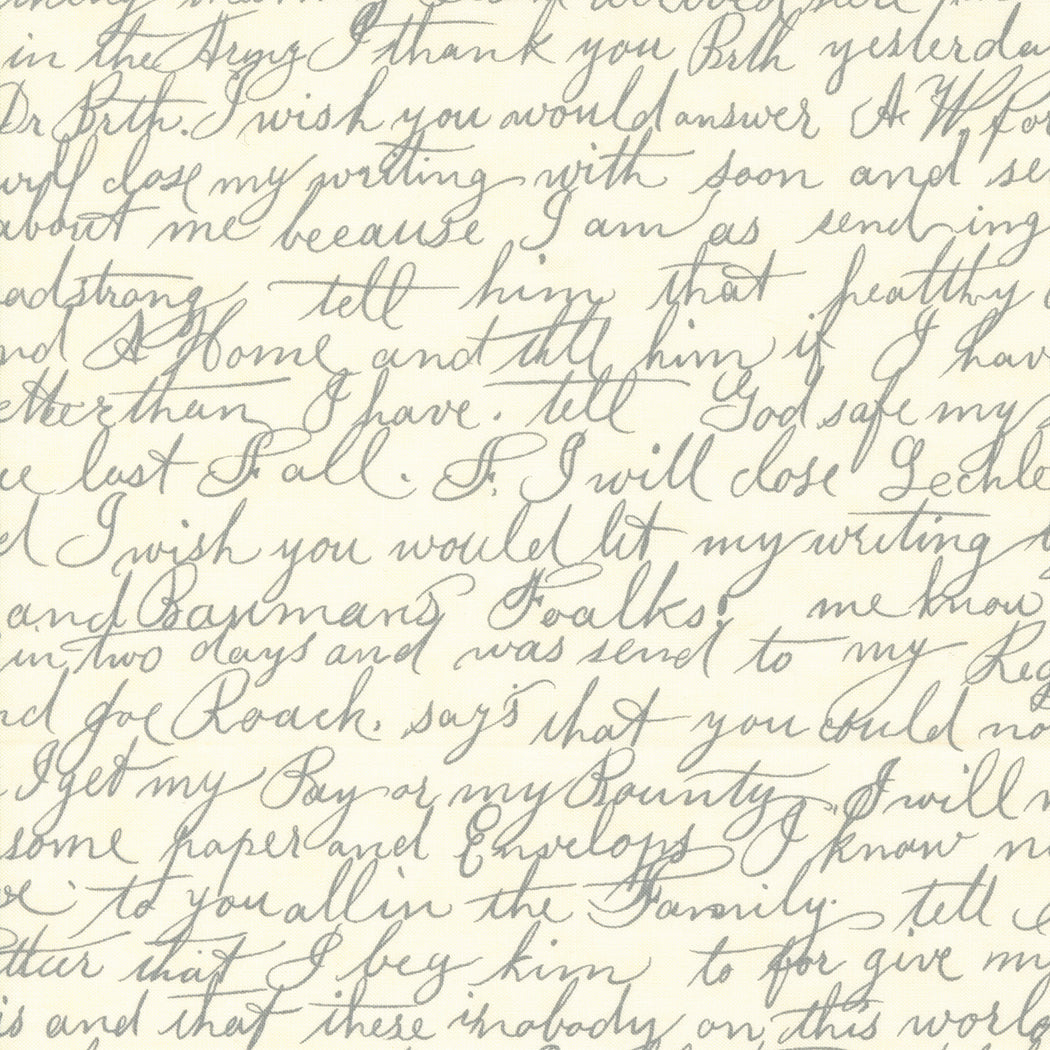 in the Army I thank you Brth yesterda
Dr Brth. I wish you would answer A W. for
will close my writing with soon and se
about me beeause I am as send ing
adstrong tell him that healthy
nd A Home and till him if I hav
etter than I have. tell God safe my
ue last Fall. F. I will close Lechle
d I wish you would let my writing
and Baumans Foalks. me know
in two days and was send to my Reg
nd Joe Roach. say's that you could no
I get my Bay or my Bounty I will
some paper and Envelops I know n
ve to you all in the Family. tell
that I beg him to for give my
is and that these is nobody on this world